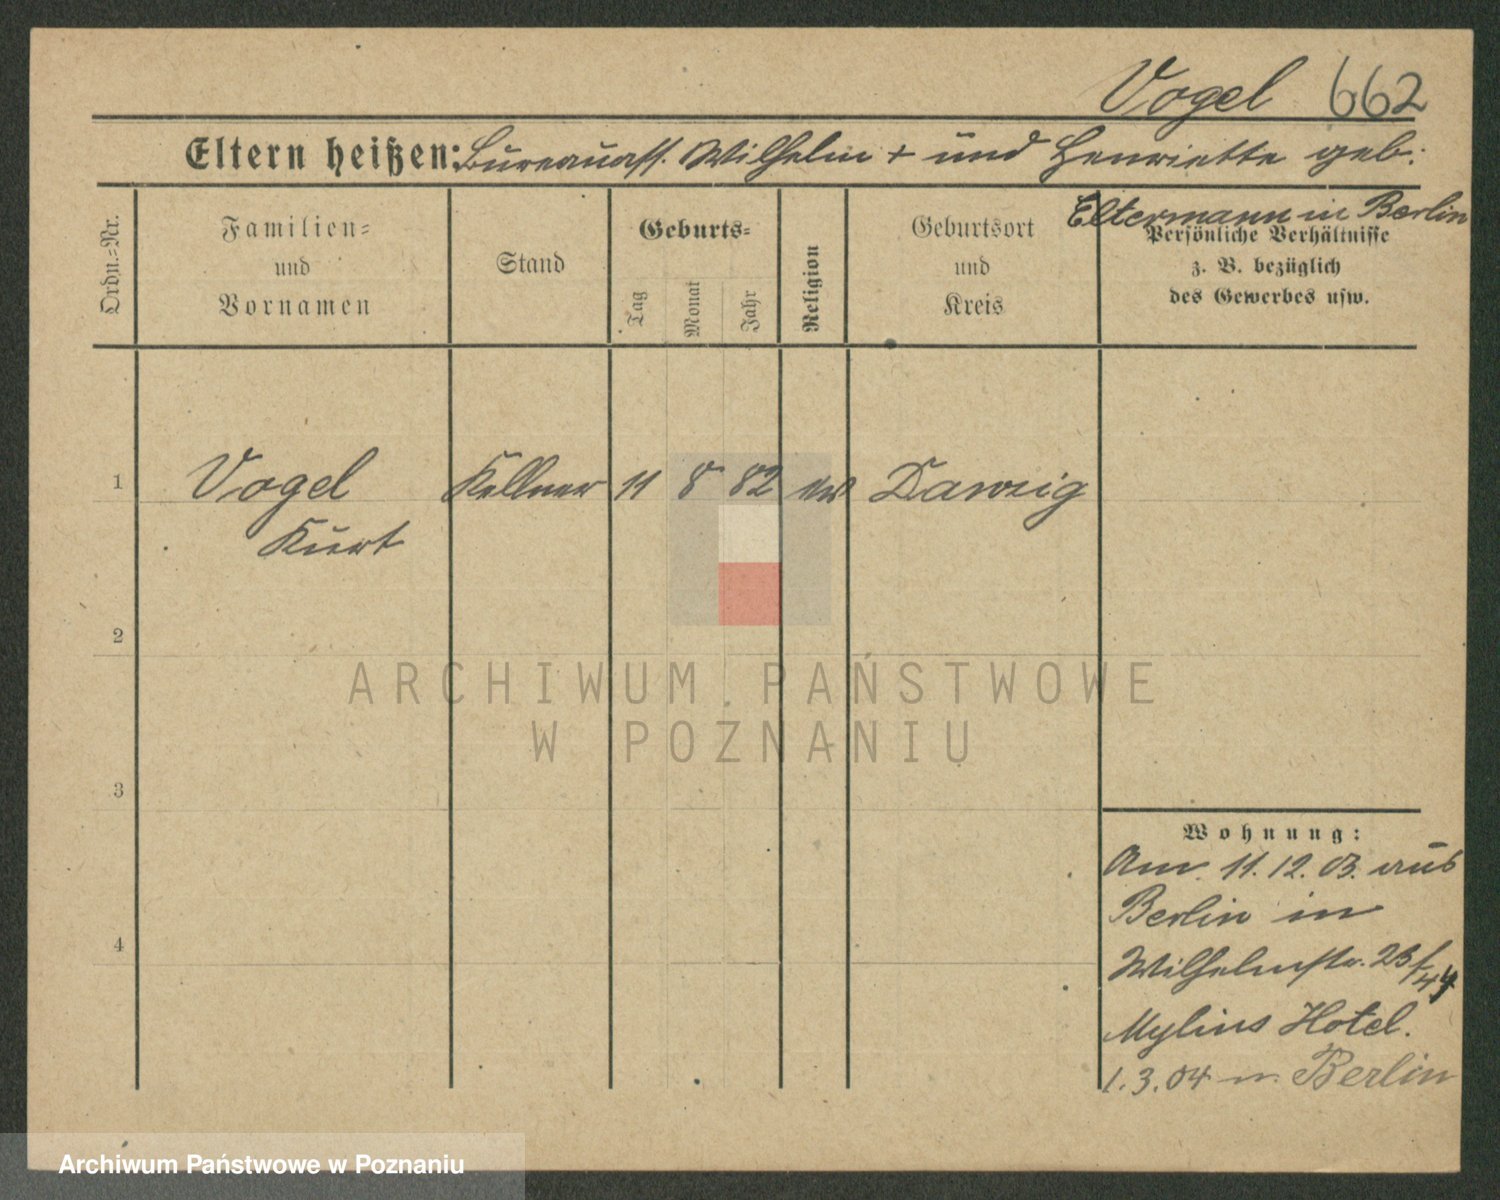 Vogel 662
Eltern heißen: Bureauass. Wilhelm + und Henriette geb:
Eltermann in Berlin
Ordn.-Nr.
Familien-
und
Vornamen
Stand
Geburts-
Tag
Monat
Jahr
Religion
Geburtsort
und
Kreis
Persönliche Verhältnisse
z. B. bezüglich
des Gewerbes usw.
1 Vogel Kellner 11 8 82 ev Danzig
Kurt
2
ARCHIWUM PAŃSTWOWE
W POZNANIU
3
4
Wohnung:
Am 11.12.03. aus
Berlin in
Wilhelmstr. 23/
Mylius Hotel.
1.3.04 n. Berlin
Archiwum Państwowe w Poznaniu